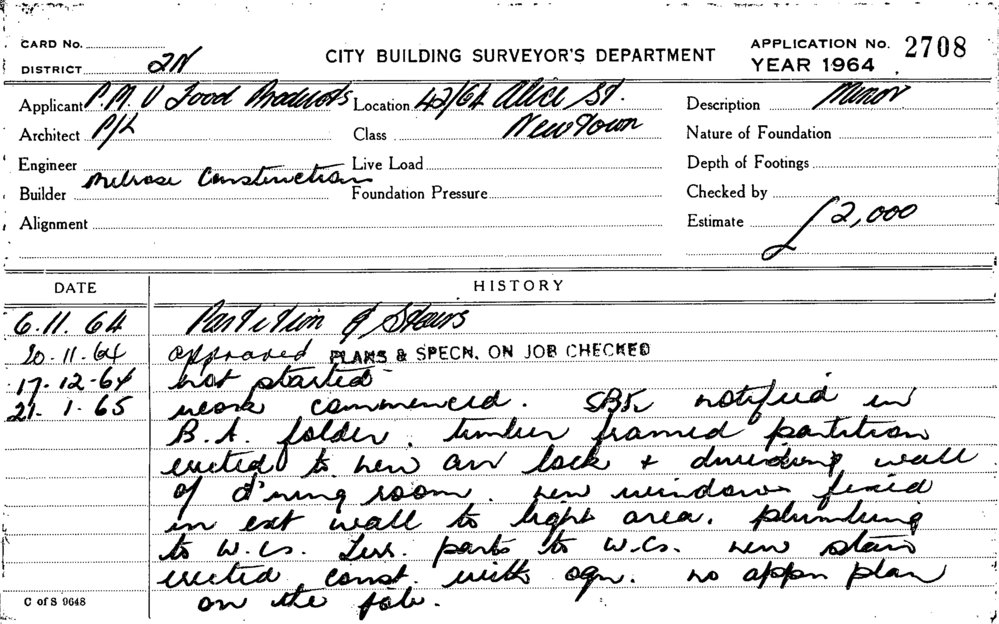 CARD No.
DISTRICT 2N
CITY BUILDING SURVEYOR'S DEPARTMENT
APPLICATION No. 2708
YEAR 1964
Applicant P.M.U Food Products Location 42/64 Alice St. Description Minor
Architect P/L Class Newtown Nature of Foundation
Engineer Live Load Depth of Footings
Builder Melrose Construction Foundation Pressure Checked by
Alignment Estimate £2,000
DATE HISTORY
6.11.64 Partition & Stairs
20.11.64 approved PLANS & SPECN. ON JOB CHECKED
17.12.64 not started
21.1.65 work commenced. notified in
B.A. folder. timber framed partition
erected to new air lock & dividing wall
of dining room. new windows fixed
in ext wall to light area. plumbing
to W.Cs. parts to W.Cs. new stair
erected const. with no appn plan
on the job.
C of S 9648